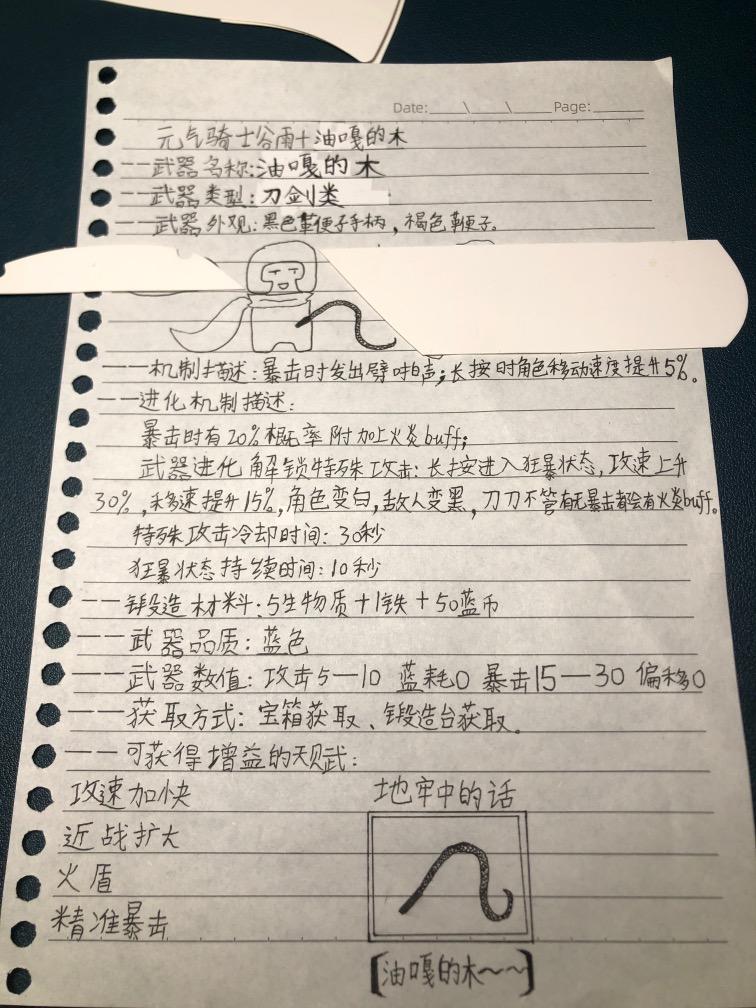 Date:____\____\____Page:______
元气骑士谷雨+油嘎的木
——武器名称:油嘎的木
——武器类型:刀剑类
——武器外观:黑色鞭子手柄,褐色鞭子。
——机制描述:暴击时发出劈啪声;长按时角色移动速度提升5%。
——进化机制描述:
暴击时有20%概率附加上火炎buff;
武器进化解锁特殊攻击:长按进入狂暴状态,攻速上升
30%,移速提升15%,角色变白,敌人变黑,刀刀不管有无暴击都会有火炎buff。
特殊攻击冷却时间:30秒
狂暴状态持续时间:10秒
——锻造材料:5生物质+1铁+50蓝币
——武器品质:蓝色
——武器数值:攻击5—10 蓝耗0 暴击15—30 偏移0
——获取方式:宝箱获取、锻造台获取。
——可获得增益的天赋:
攻速加快
近战扩大
火盾
精准暴击
地牢中的话
【油嘎的木~~】